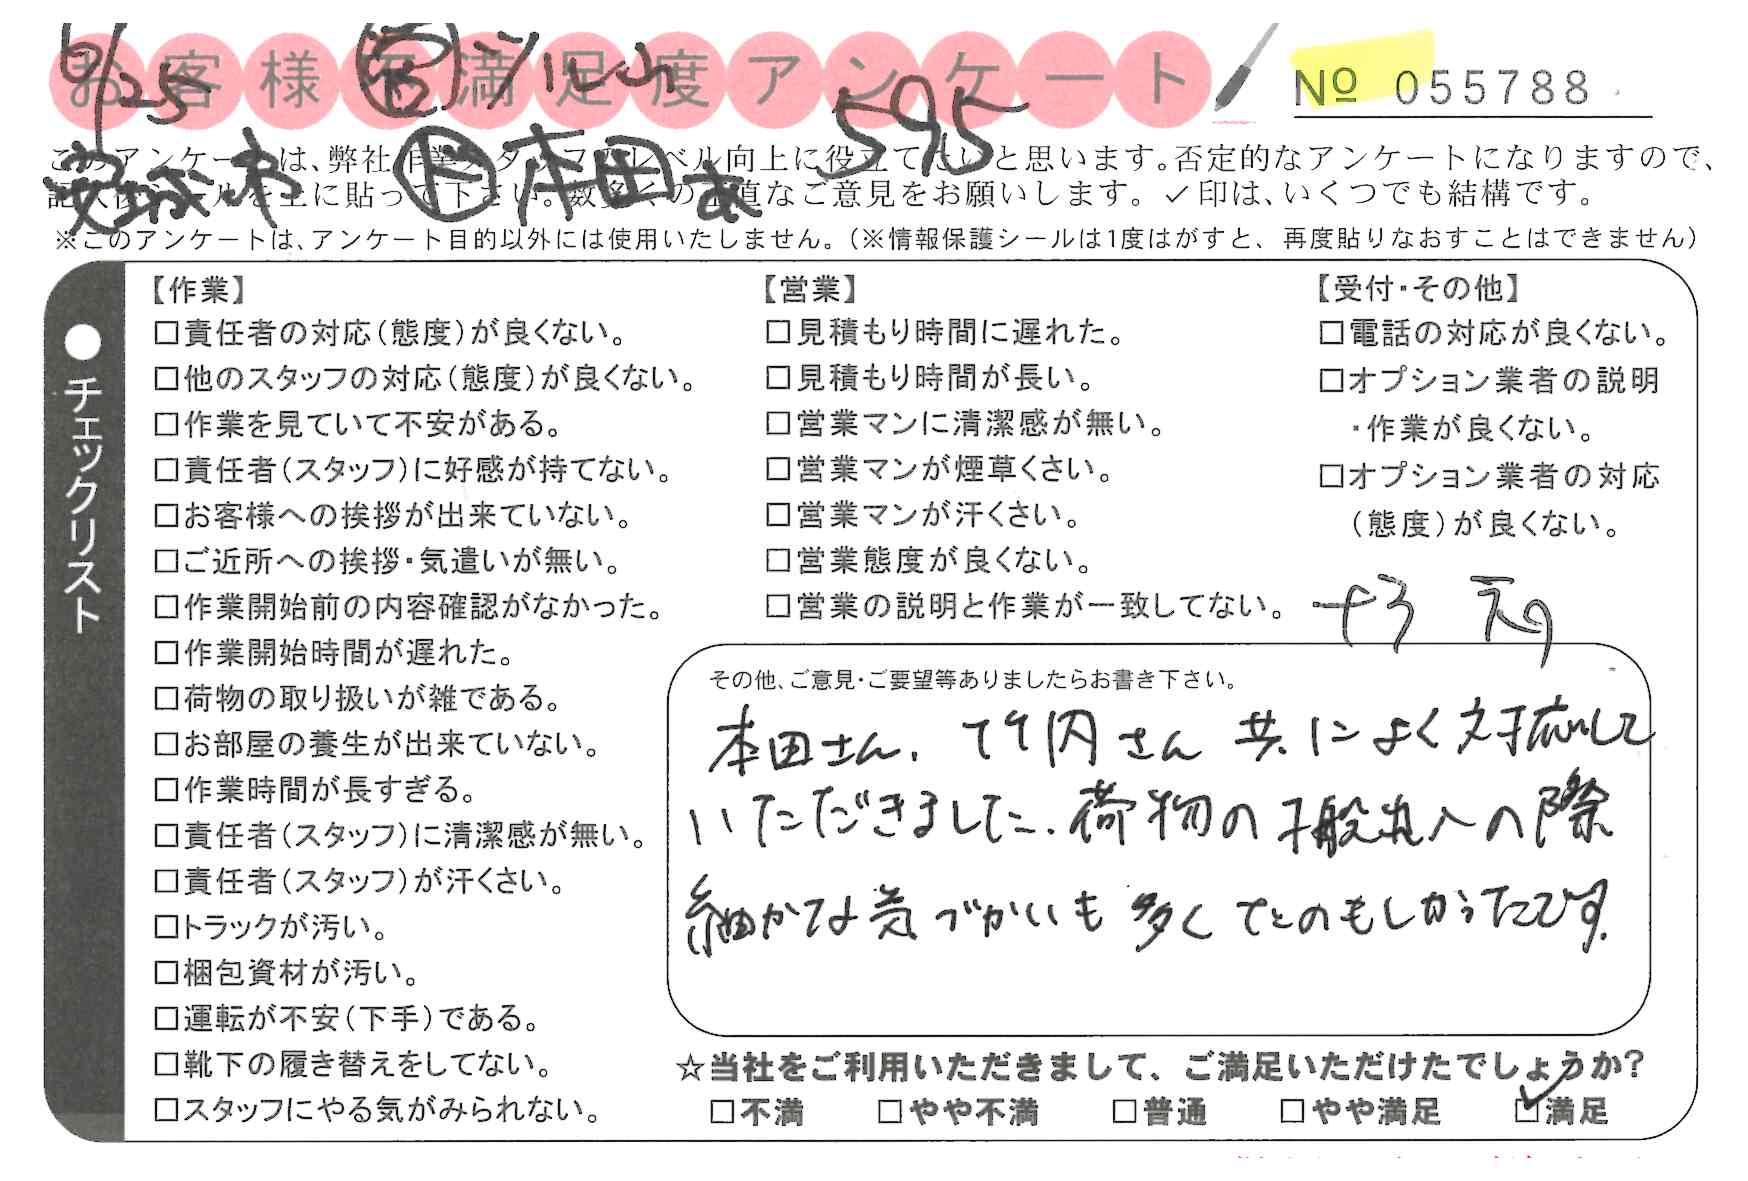 お客様不満足度アンケート
№ 055788
6/25
595
本田
このアンケートは、弊社作業スタッフのレベル向上に役立てたいと思います。否定的なアンケートになりますので、
記入後シールを上に貼って下さい。数多くの正直なご意見をお願いします。✓印は、いくつでも結構です。
※このアンケートは、アンケート目的以外には使用いたしません。（※情報保護シールは1度はがすと、再度貼りなおすことはできません）
●チェックリスト
【作業】
□責任者の対応（態度）が良くない。
□他のスタッフの対応（態度）が良くない。
□作業を見ていて不安がある。
□責任者（スタッフ）に好感が持てない。
□お客様への挨拶が出来ていない。
□ご近所への挨拶・気遣いが無い。
□作業開始前の内容確認がなかった。
□作業開始時間が遅れた。
□荷物の取り扱いが雑である。
□お部屋の養生が出来ていない。
□作業時間が長すぎる。
□責任者（スタッフ）に清潔感が無い。
□責任者（スタッフ）が汗くさい。
□トラックが汚い。
□梱包資材が汚い。
□運転が不安（下手）である。
□靴下の履き替えをしてない。
□スタッフにやる気がみられない。
【営業】
□見積もり時間に遅れた。
□見積もり時間が長い。
□営業マンに清潔感が無い。
□営業マンが煙草くさい。
□営業マンが汗くさい。
□営業態度が良くない。
□営業の説明と作業が一致してない。
【受付・その他】
□電話の対応が良くない。
□オプション業者の説明
・作業が良くない。
□オプション業者の対応
（態度）が良くない。
その他、ご意見・ご要望等ありましたらお書き下さい。
本田さん、竹内さん共によく対応して
いただきました。荷物の搬出入の際
細かな気づかいも多くたのもしかったです。
☆当社をご利用いただきまして、ご満足いただけたでしょうか?
□不満 □やや不満 □普通 □やや満足 ☑満足